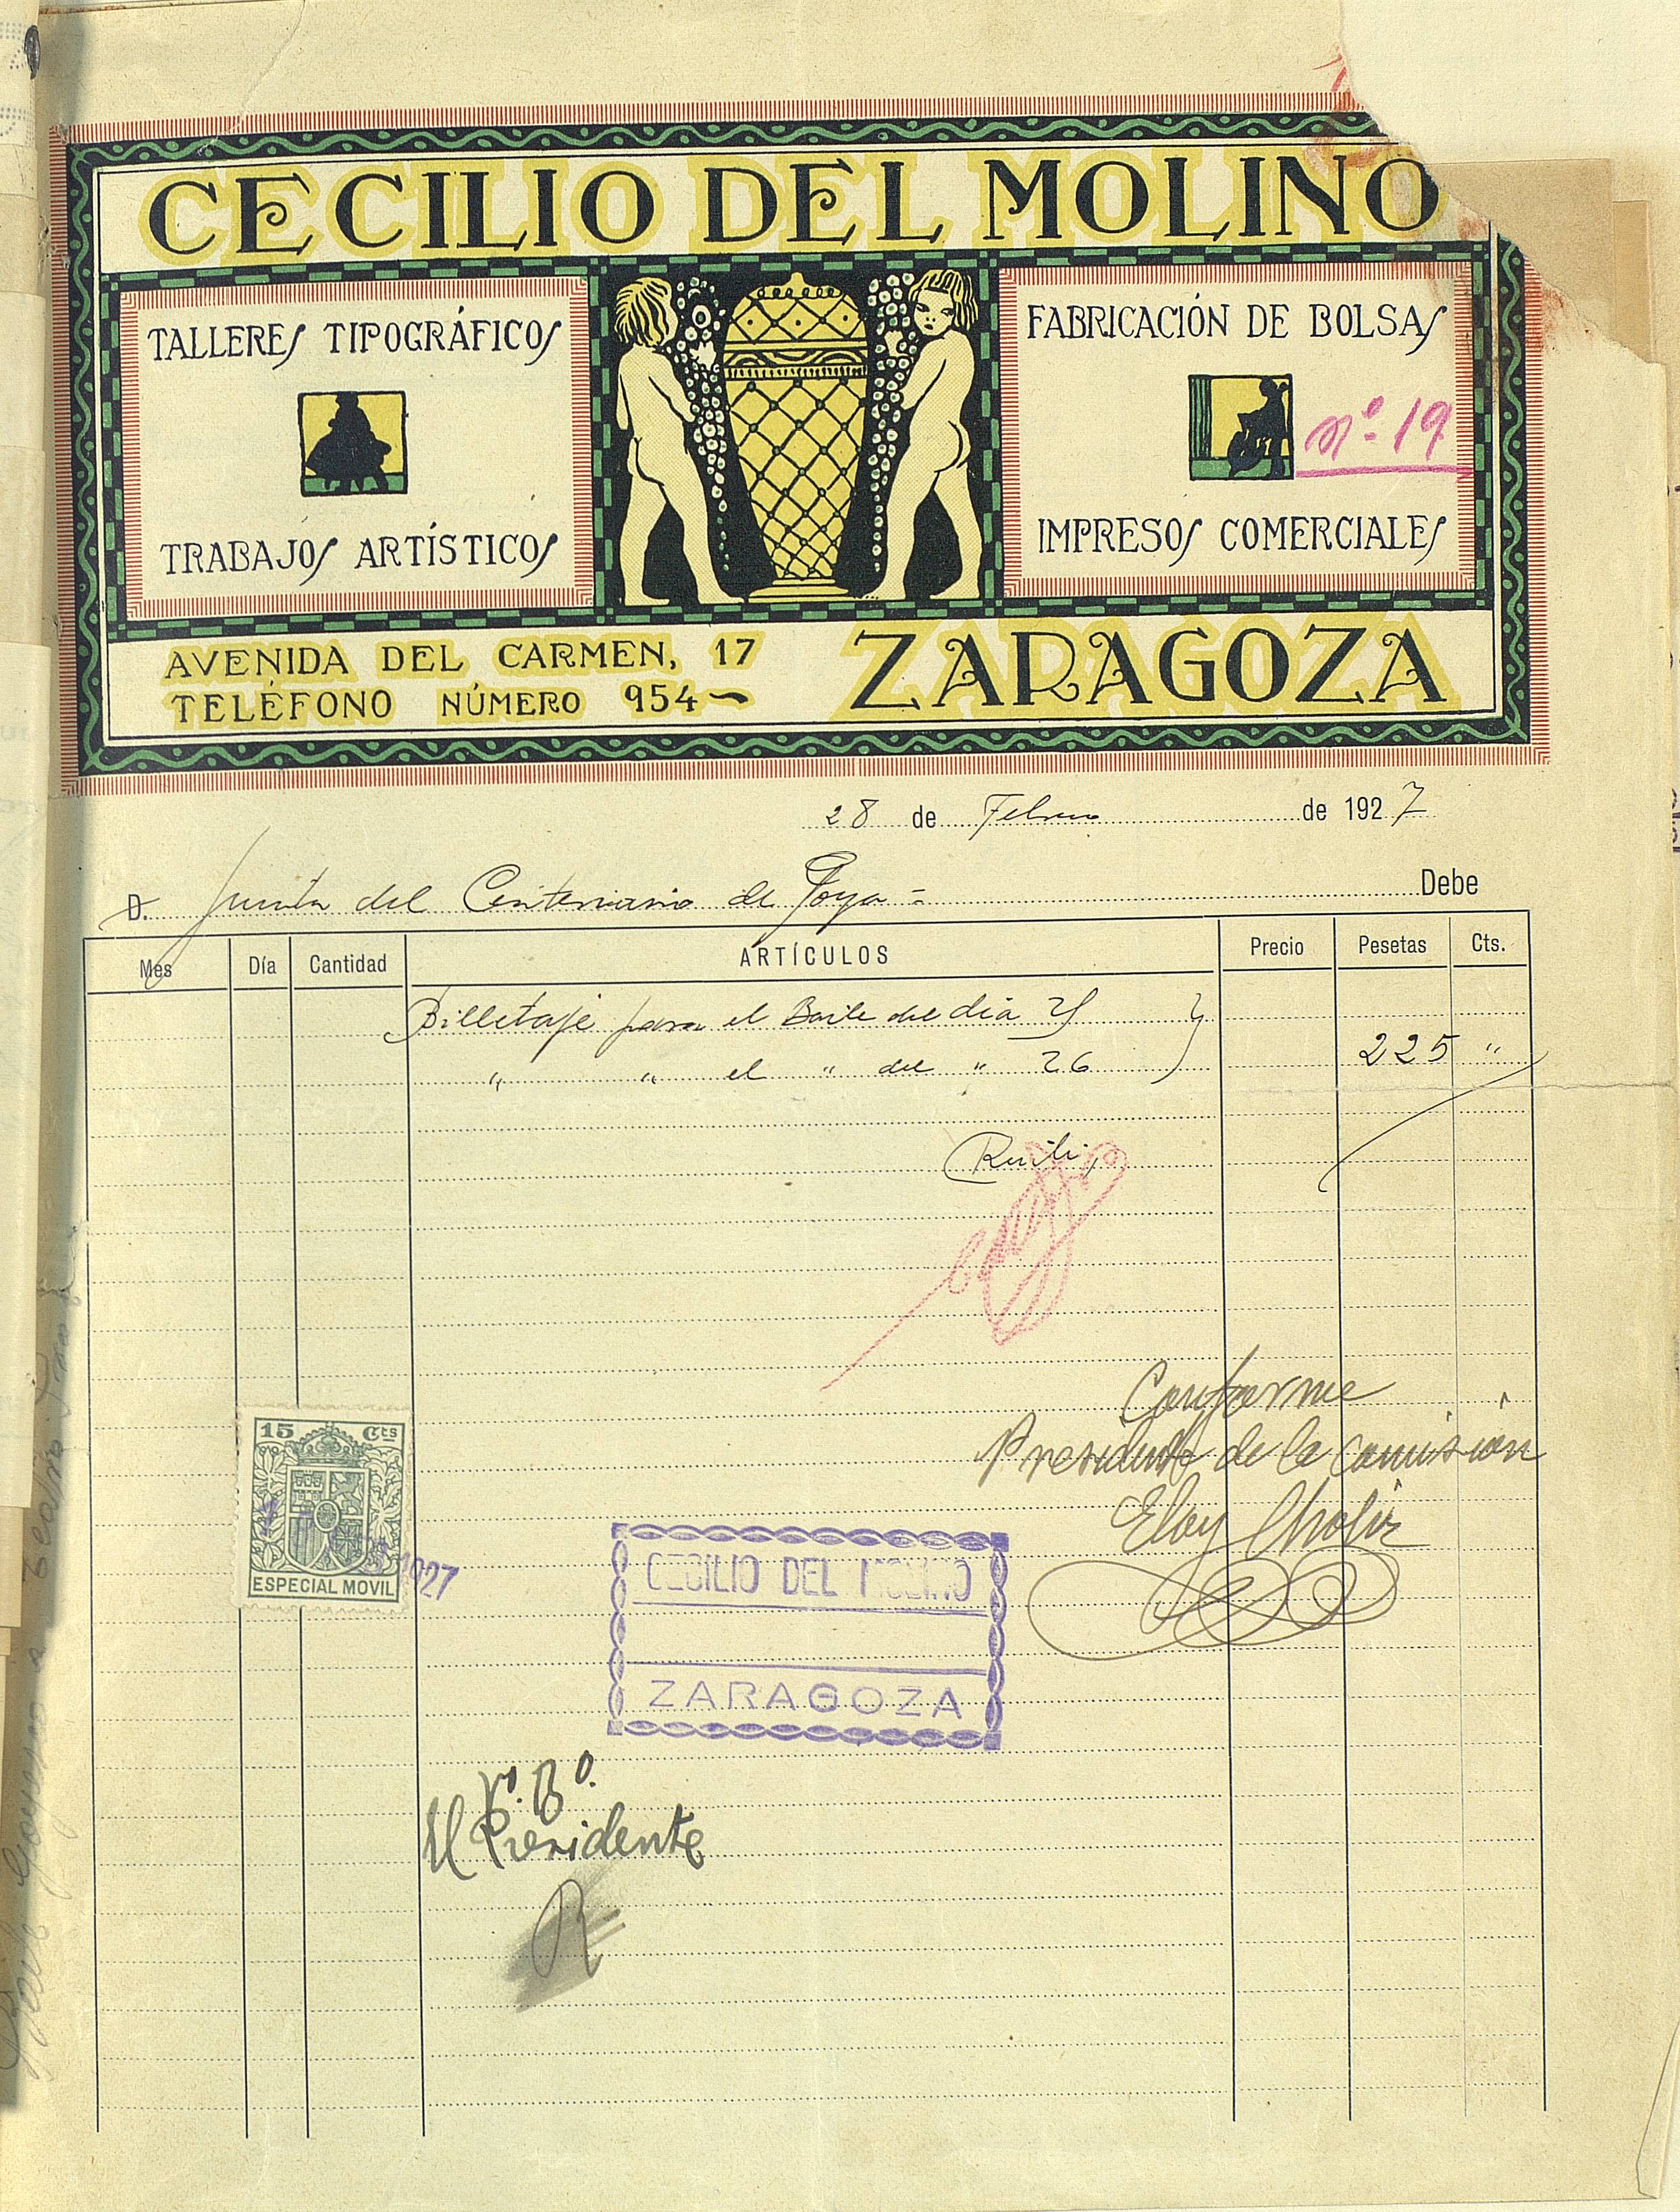 CECILIO DEL MOLINO
TALLERES TIPOGRÁFICOS
FABRICACIÓN DE BOLSAS
nº 19
TRABAJOS ARTÍSTICOS
IMPRESOS COMERCIALES
AVENIDA DEL CARMEN, 17
TELÉFONO NÚMERO 954
ZARAGOZA
28 de Febrero de 1927
D. Junta del Centenario de Goya = Debe
Mes Día Cantidad ARTÍCULOS Precio Pesetas Cts.
Billetaje para el Baile del día
" " el " del " 26
225 "
Recibí
Conforme
Presidente de la Comisión
Eloy
15 Cts
ESPECIAL MOVIL
1927
CECILIO DEL MOLINO
ZARAGOZA
Vº. Bº.
El Presidente